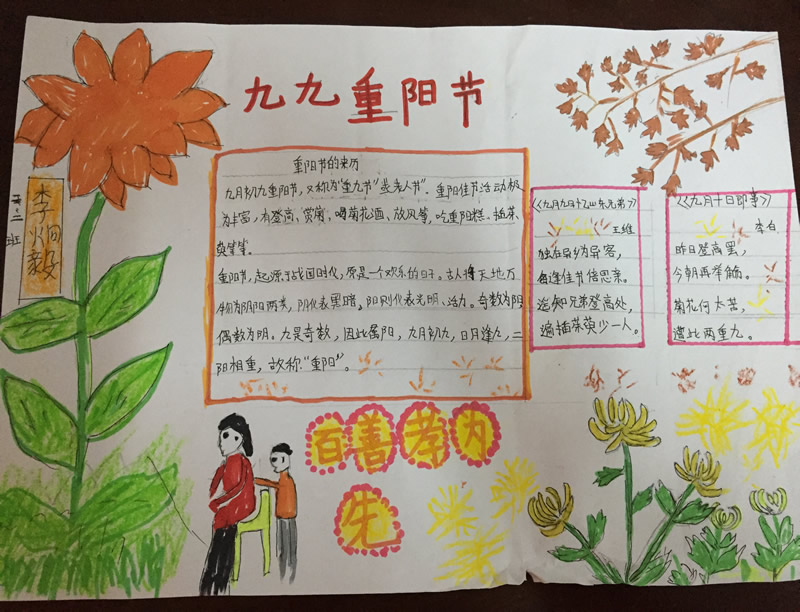 九九重阳节
重阳节的来历
九月初九重阳节，又称为"重九节"或老人节"。重阳佳节活动极
为丰富，有登高、赏菊、喝菊花酒、放风筝，吃重阳糕、插茱
萸等等。
重阳节，起源于战国时代，原是一个欢乐的日子。古人将天地万
物归为阴阳两类，阴代表黑暗，阳则代表光明、活力。奇数为阳，
偶数为阴。九是奇数，因此属阳，九月初九，日月逢九，二
阳相重，故称"重阳"。
《九月九日忆山东兄弟》
王维
独在异乡为异客，
每逢佳节倍思亲。
遥知兄弟登高处，
遍插茱萸少一人。
《九月十日即事》
李白
昨日登高罢，
今朝再举觞。
菊花何太苦，
遭此两重九。
百善孝为
先
李炯毅
二班